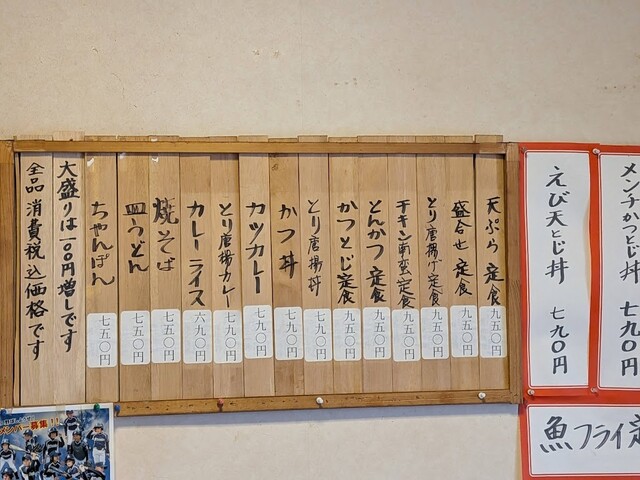 メンチかつとじ丼 七九〇円
えび天とじ丼 七九〇円
魚フライ定
天ぷら定食 九五〇円
盛合せ定食 九五〇円
とり唐揚げ定食 九五〇円
チキン南蛮定食 九五〇円
とんかつ定食 九五〇円
かつとじ定食 九五〇円
とり唐揚丼 七九〇円
かつ丼 七九〇円
カツカレー 七九〇円
とり唐揚カレー 七九〇円
カレーライス 六九〇円
焼そば 七五〇円
皿うどん 七五〇円
ちゃんぽん 七五〇円
大盛りは一〇〇円増しです
全品消費税込価格です
メンバー募集!!